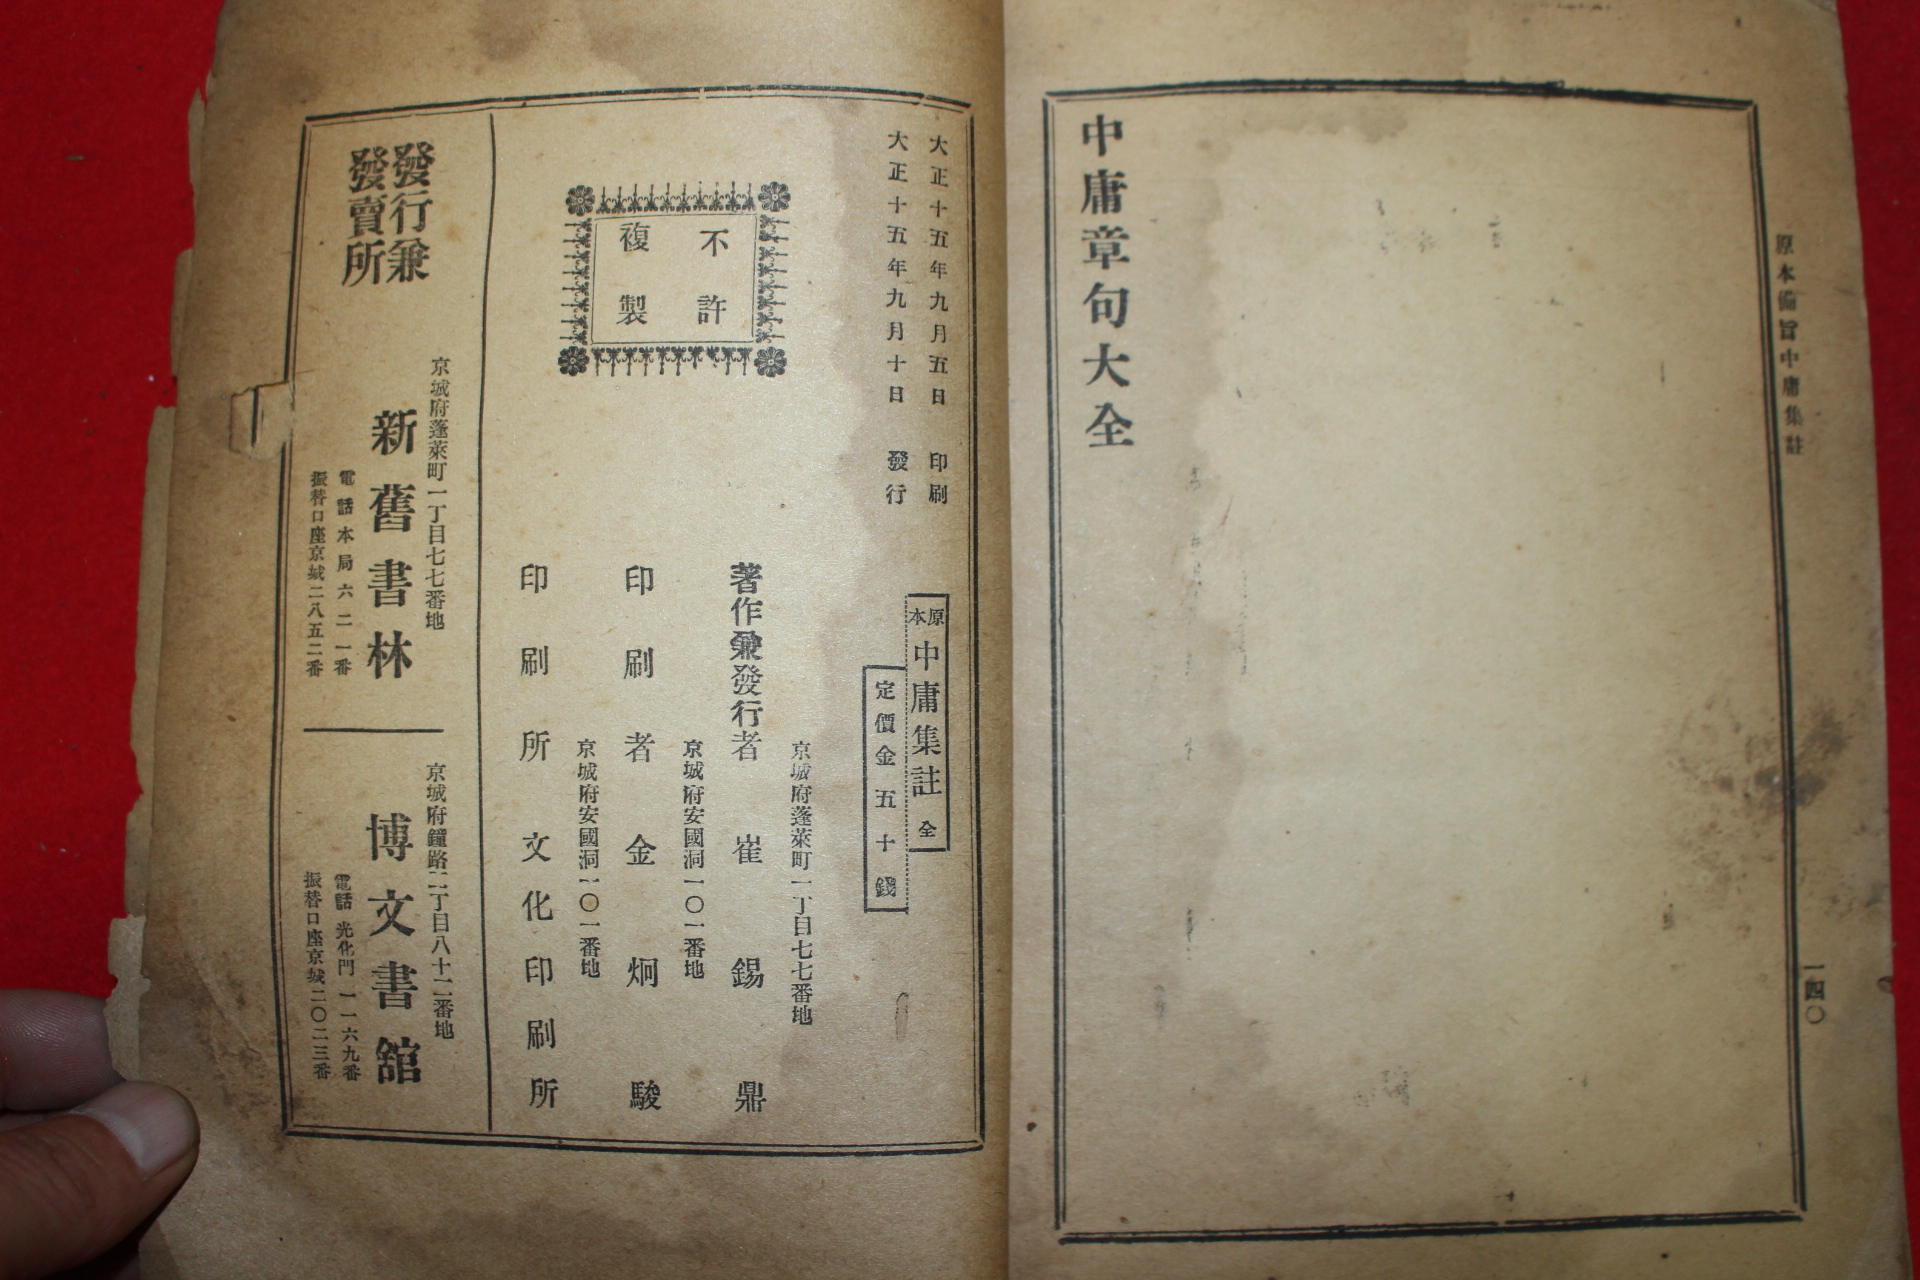 原本備旨中庸集註
一四〇
中庸章句大全
大正十五年九月五日 印刷
大正十五年九月十日 發行
原本 中庸集註 全
定價金五十錢
不許
複製
京城府蓬萊町一丁目七七番地
著作兼發行者 崔錫鼎
京城府安國洞一〇一番地
印刷者 金炯駿
京城府安國洞一〇一番地
印刷所 文化印刷所
發行兼
發賣所
京城府蓬萊町一丁目七七番地
新舊書林
電話本局六二一番
振替口座京城二八五二番
京城府鐘路二丁目八十二番地
博文書館
電話光化門一一六九番
振替口座京城二〇二三番